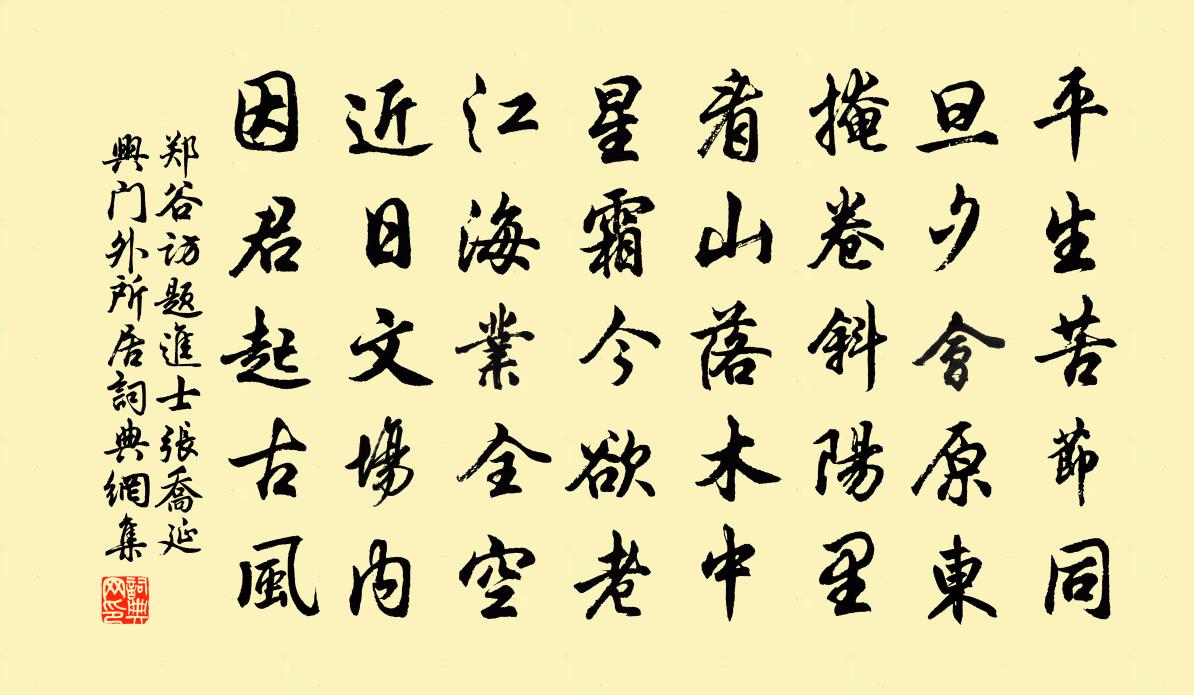 平生苦節同
旦夕會原東
掩卷斜陽里
看山落木中
星霜今欲老
江海業全空
近日文場內
因君起古風
郑谷访題進士張喬延
興门外所居詞典網集
詞典網印